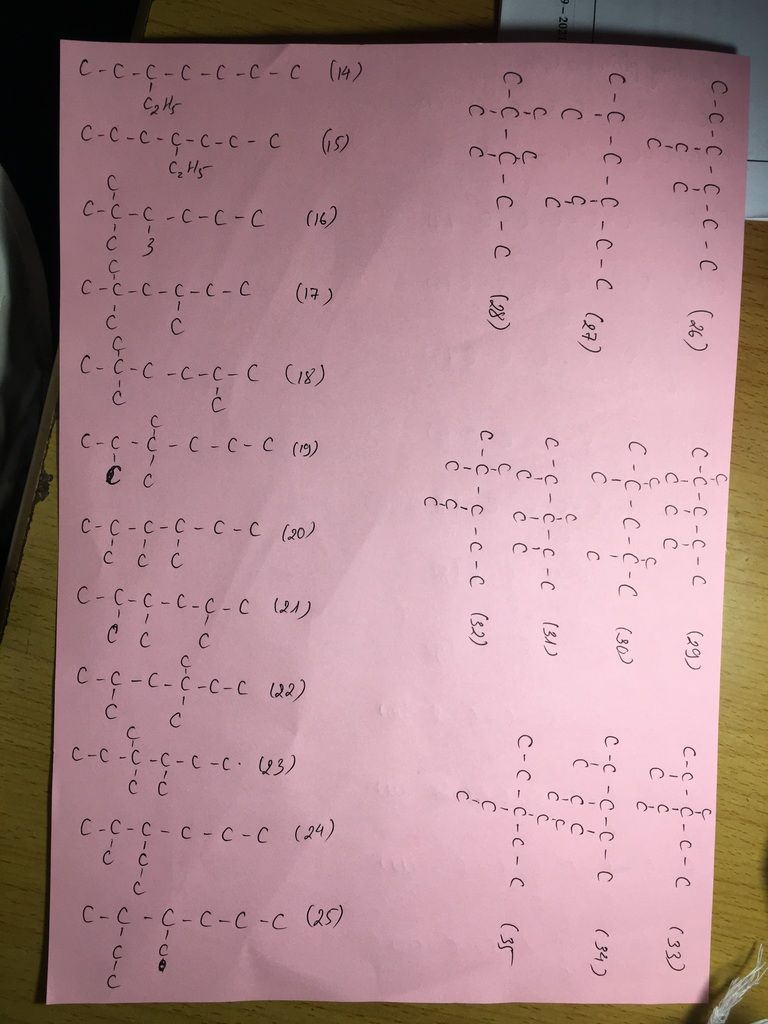 C - C - C - C - C - C - C (14)
C2H5
C - C - C - C - C - C - C (15)
C2H5
C
C - C - C - C - C - C (16)
C 3
C
C - C - C - C - C - C (17)
C C
C
C - C - C - C - C - C (18)
C C
C
C - C - C - C - C - C (19)
C C
C - C - C - C - C - C (20)
C C C
C - C - C - C - C - C (21)
C C C
C
C - C - C - C - C - C (22)
C C
C
C - C - C - C - C - C. (23)
C C
C - C - C - C - C - C (24)
C C
C
C - C - C - C - C - C (25)
C C
C
C - C - C - C - C - C (26)
C - C - C
C
C - C - C - C - C - C (27)
C C
C
C C
C - C - C - C - C (28)
C C
C
C - C - C - C - C (29)
C C
C C
C C
C - C - C - C - C (30)
C C
C
C - C - C - C - C (31)
C C C
C
C - C - C - C - C (32)
C C
C
C
C - C - C - C - C (33)
C C
C
C - C - C - C - C (34)
C C C
C C
C
C
C - C - C - C - C (35
C
C
9-202